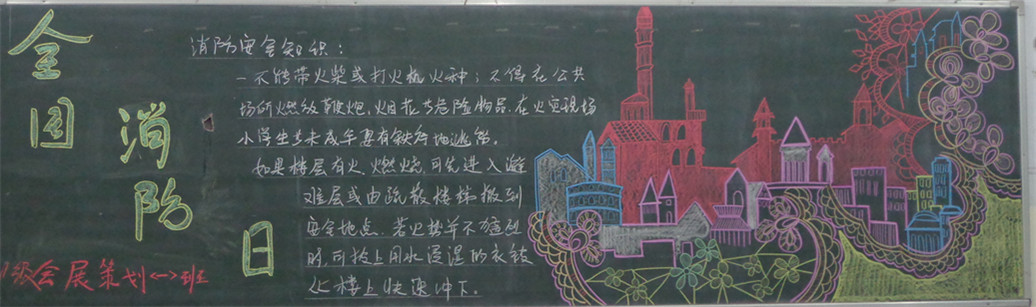 全国
消防
日
消防安全知识：
一不能带火柴或打火机火种；不得在公共
场所燃放鞭炮、烟花等危险物品。在火灾现场
小学生等未成年要有秩序地逃
如果楼层有火燃烧，可先进入避
难层或由疏散楼梯撤到
安全地点．若火势并不猛烈
时，可披上用水浸湿的衣被
从楼上快速冲下。
级会展策划<->班